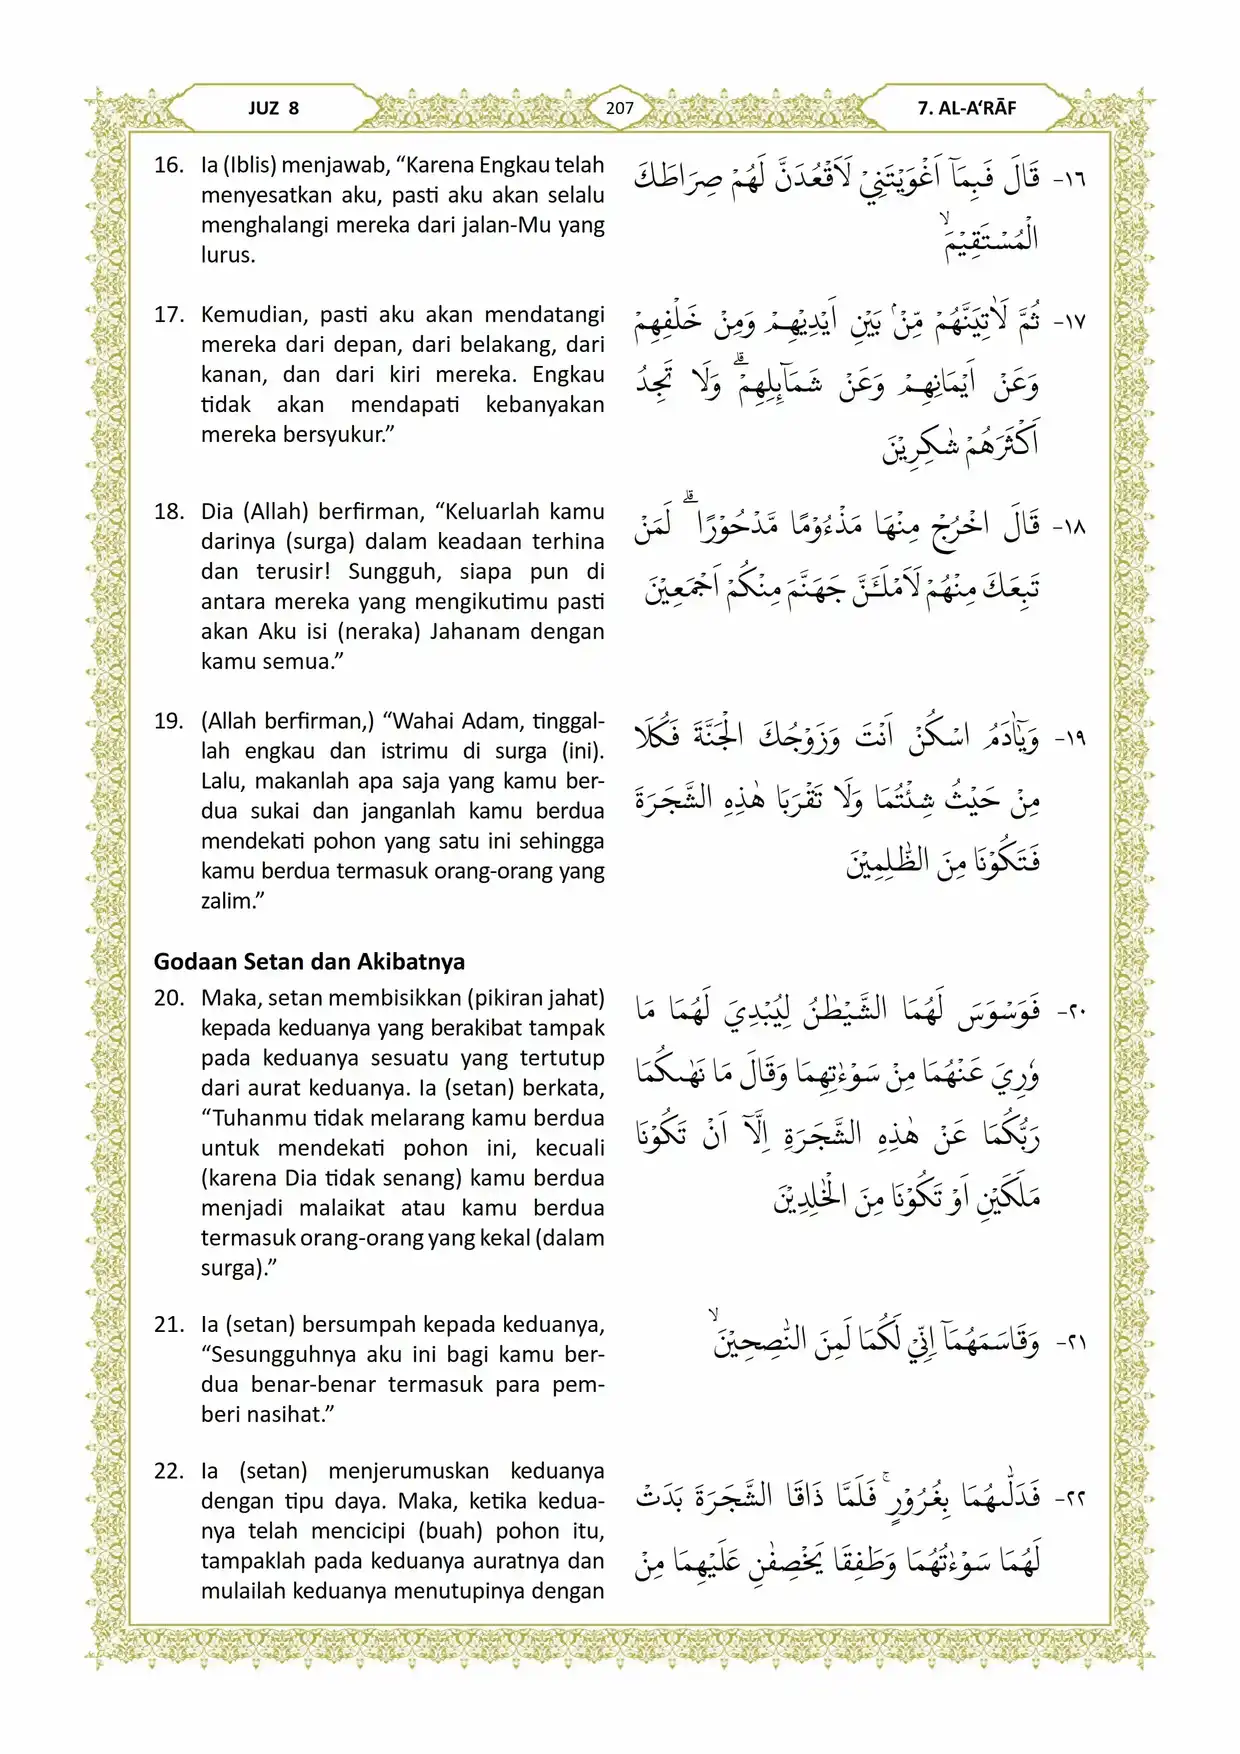 JUZ 8
207
7. AL-A‘RĀF
16. Ia (Iblis) menjawab, “Karena Engkau telah
menyesatkan aku, pasti aku akan selalu
menghalangi mereka dari jalan-Mu yang
lurus.
١٦- قَالَ فَبِمَآ اَغْوَيْتَنِيْ لَاَقْعُدَنَّ لَهُمْ صِرَاطَكَ
الْمُسْتَقِيْمَۙ
17. Kemudian, pasti aku akan mendatangi
mereka dari depan, dari belakang, dari
kanan, dan dari kiri mereka. Engkau
tidak akan mendapati kebanyakan
mereka bersyukur.”
١٧- ثُمَّ لَاٰتِيَنَّهُمْ مِّنْۢ بَيْنِ اَيْدِيْهِمْ وَمِنْ خَلْفِهِمْ
وَعَنْ اَيْمَانِهِمْ وَعَنْ شَمَآىِٕلِهِمْۗ وَلَا تَجِدُ
اَكْثَرَهُمْ شٰكِرِيْنَ
18. Dia (Allah) berfirman, “Keluarlah kamu
darinya (surga) dalam keadaan terhina
dan terusir! Sungguh, siapa pun di
antara mereka yang mengikutimu pasti
akan Aku isi (neraka) Jahanam dengan
kamu semua.”
١٨- قَالَ اخْرُجْ مِنْهَا مَذْءُوْمًا مَّدْحُوْرًاۗ لَمَنْ
تَبِعَكَ مِنْهُمْ لَاَمْلَـَٔنَّ جَهَنَّمَ مِنْكُمْ اَجْمَعِيْنَ
19. (Allah berfirman,) “Wahai Adam, tinggal-
lah engkau dan istrimu di surga (ini).
Lalu, makanlah apa saja yang kamu ber-
dua sukai dan janganlah kamu berdua
mendekati pohon yang satu ini sehingga
kamu berdua termasuk orang-orang yang
zalim.”
١٩- وَيٰٓاٰدَمُ اسْكُنْ اَنْتَ وَزَوْجُكَ الْجَنَّةَ فَكُلَا
مِنْ حَيْثُ شِئْتُمَا وَلَا تَقْرَبَا هٰذِهِ الشَّجَرَةَ
فَتَكُوْنَا مِنَ الظّٰلِمِيْنَ
Godaan Setan dan Akibatnya
20. Maka, setan membisikkan (pikiran jahat)
kepada keduanya yang berakibat tampak
pada keduanya sesuatu yang tertutup
dari aurat keduanya. Ia (setan) berkata,
“Tuhanmu tidak melarang kamu berdua
untuk mendekati pohon ini, kecuali
(karena Dia tidak senang) kamu berdua
menjadi malaikat atau kamu berdua
termasuk orang-orang yang kekal (dalam
surga).”
٢٠- فَوَسْوَسَ لَهُمَا الشَّيْطٰنُ لِيُبْدِيَ لَهُمَا مَا
وٗرِيَ عَنْهُمَا مِنْ سَوْءٰتِهِمَا وَقَالَ مَا نَهٰىكُمَا
رَبُّكُمَا عَنْ هٰذِهِ الشَّجَرَةِ اِلَّآ اَنْ تَكُوْنَا
مَلَكَيْنِ اَوْ تَكُوْنَا مِنَ الْخٰلِدِيْنَ
21. Ia (setan) bersumpah kepada keduanya,
“Sesungguhnya aku ini bagi kamu ber-
dua benar-benar termasuk para pem-
beri nasihat.”
٢١- وَقَاسَمَهُمَآ اِنِّيْ لَكُمَا لَمِنَ النّٰصِحِيْنَۙ
22. Ia (setan) menjerumuskan keduanya
dengan tipu daya. Maka, ketika kedua-
nya telah mencicipi (buah) pohon itu,
tampaklah pada keduanya auratnya dan
mulailah keduanya menutupinya dengan
٢٢- فَدَلّٰىهُمَا بِغُرُوْرٍۚ فَلَمَّا ذَاقَا الشَّجَرَةَ بَدَتْ
لَهُمَا سَوْءٰتُهُمَا وَطَفِقَا يَخْصِفٰنِ عَلَيْهِمَا مِنْ